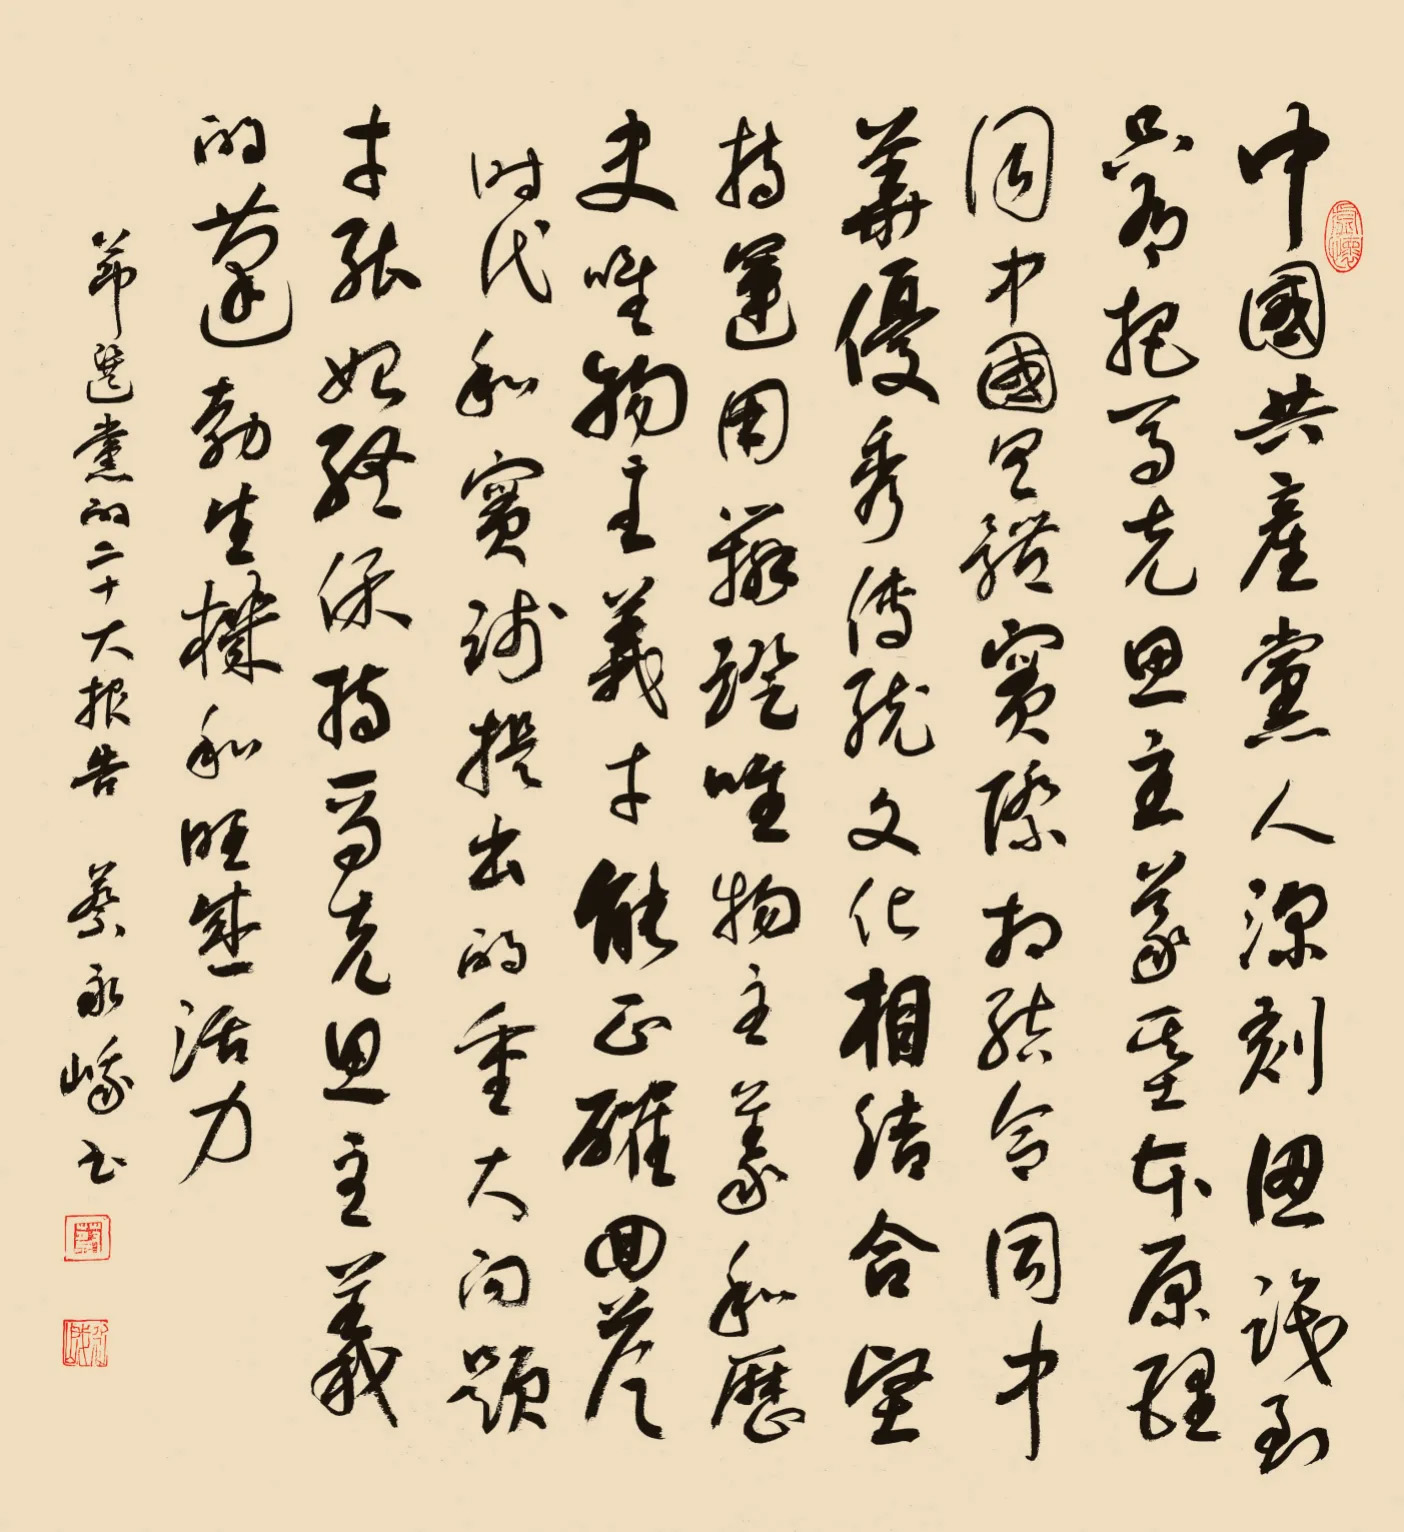 中國共產黨人深刻認識到
只有把馬克思主義基本原理
同中國具體實際相結合同中
華優秀傳統文化相結合堅
持運用辯證唯物主義和歷
史唯物主義才能正確回答
时代和實踐提出的重大问題
才能始終保持馬克思主義
的蓬勃生機和旺盛活力
節選黨的二十大报告 蔡永峨书